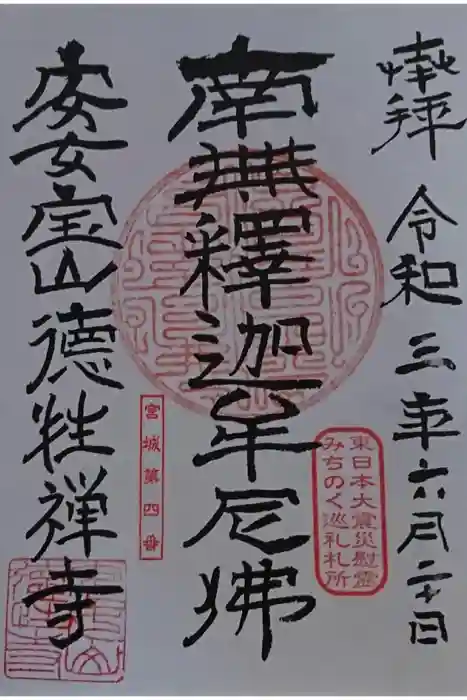 奉拝 令和三年六月二十日
東日本大震災慰霊
みちのく巡礼札所
南無釋迦牟尼佛
宮城第四番
安女宝山徳性禅寺